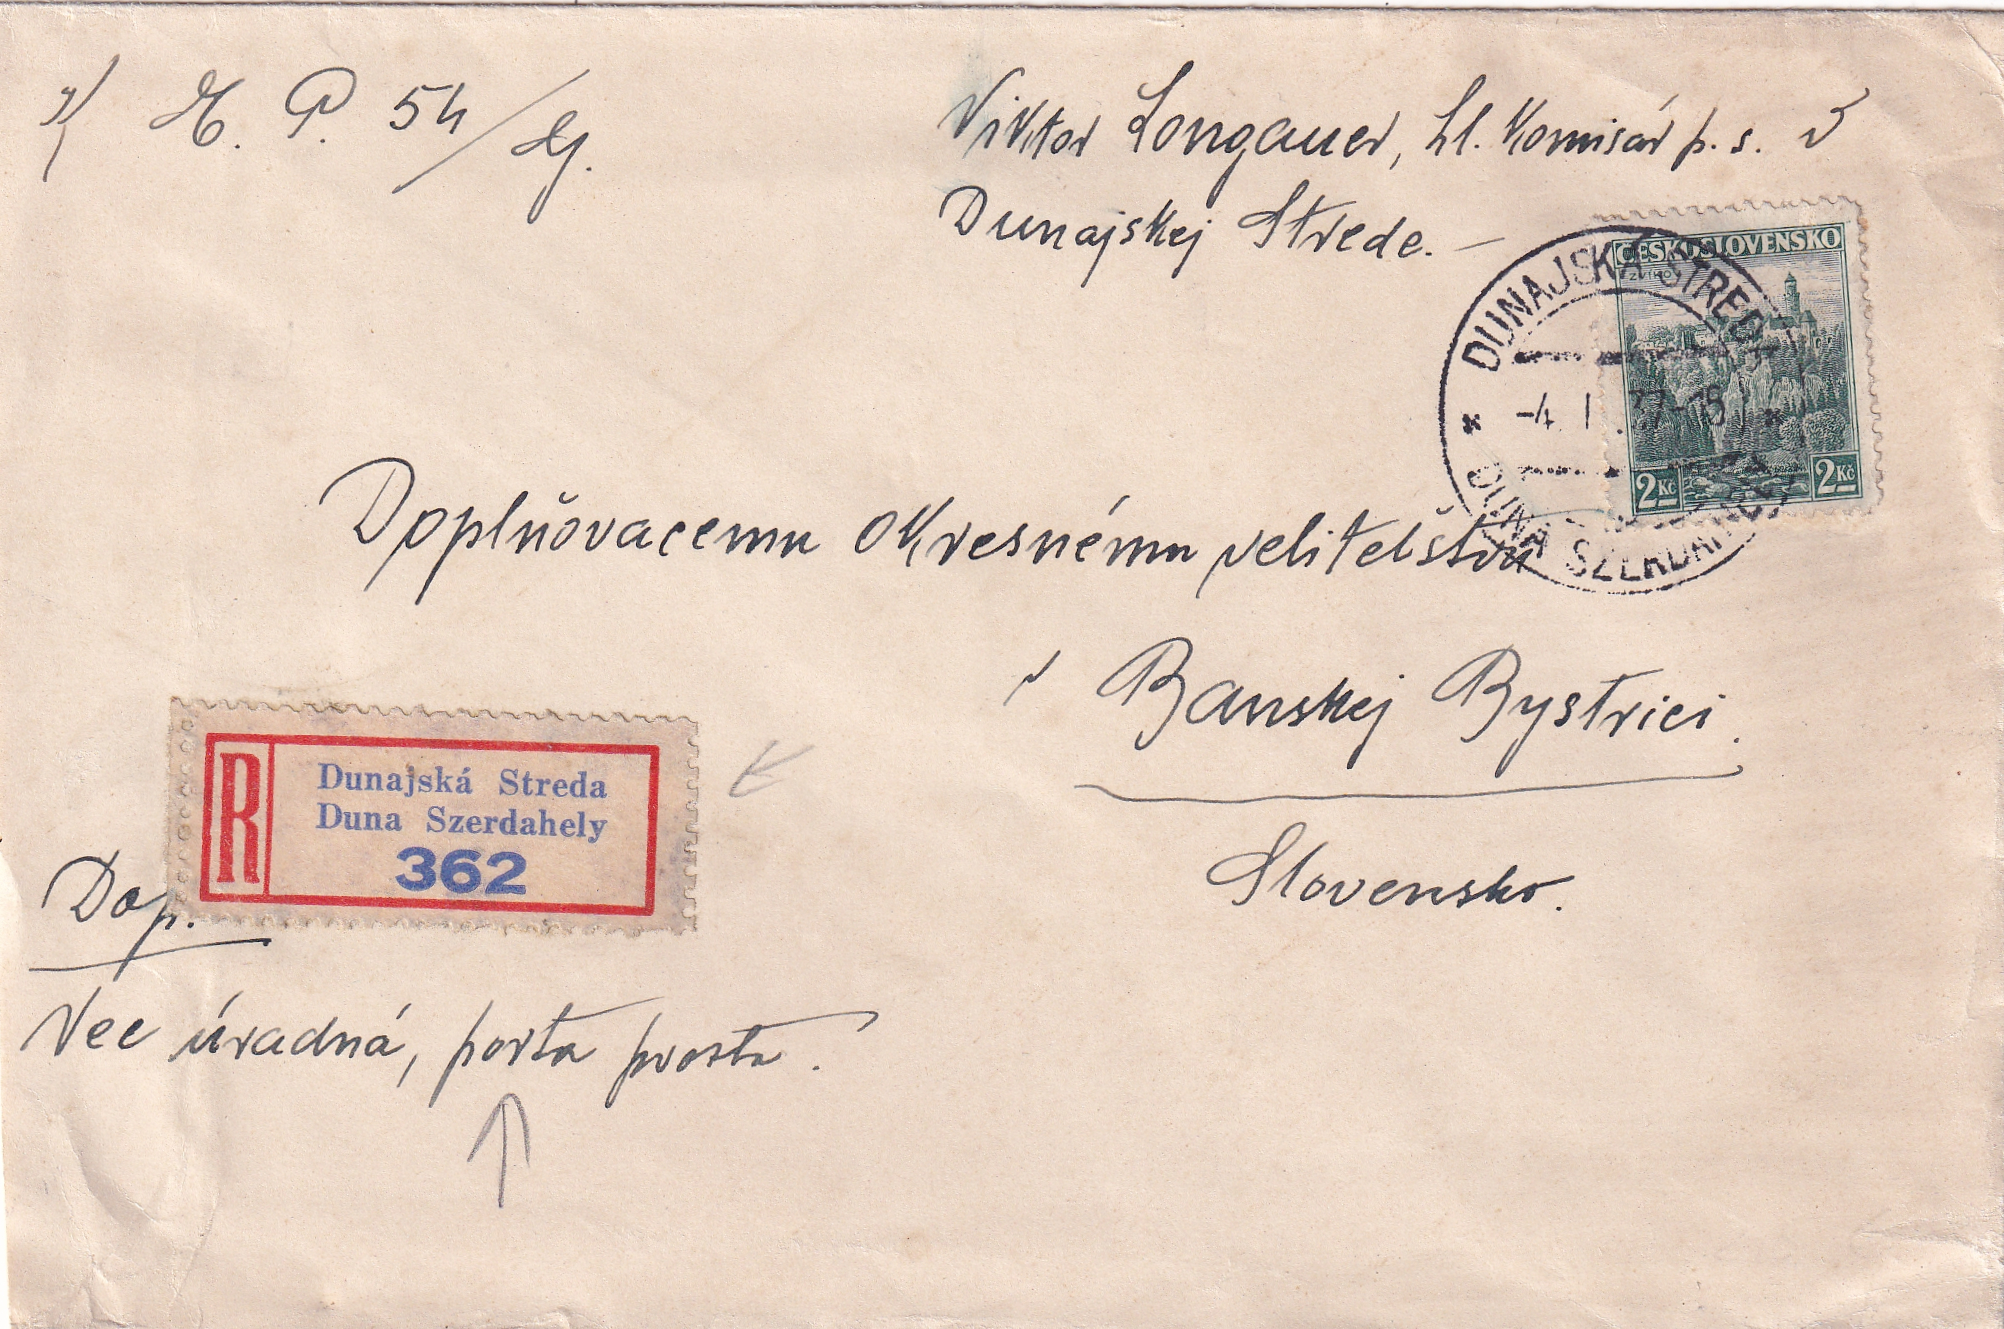 P. 54/
Viktor Longauer, hl. komisár p. s. v
Dunajskej Strede. —
ČESKOSLOVENSKO
ZVÍKOV
2 Kč 2 Kč
DUNAJSKÁ STREDA
-4. I. 37-15
DUNA SZERDAHELY
Doplňovacemu okresnému veliteľstvu
v Banskej Bystrici.
Slovensko.
R
Dunajská Streda
Duna Szerdahely
362
Dop.
Vec úradná, porta prosta.